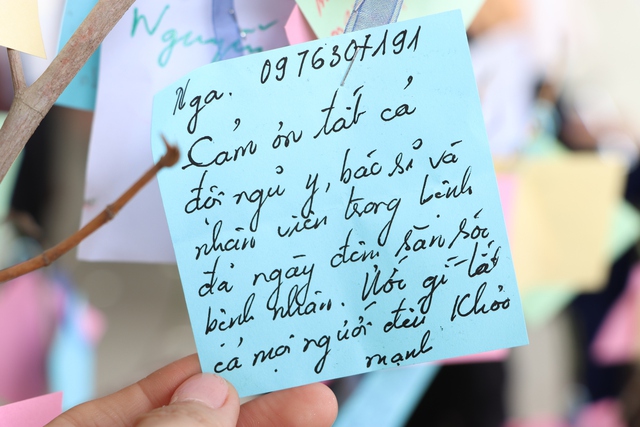 Nguyễn
Nga. 0976307191
Cảm ơn tất cả
đội ngủ y, bác sỉ và
nhân viên trong bệnh
đả ngày đêm săn sóc
bệnh nhân. Ước gì tất
cả mọi người đều Khỏe
mạnh